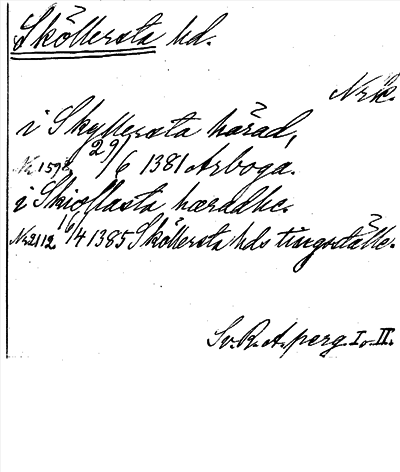 Sköllersta hd.
Nrk.
i Skyllersta härad,
Nr 1598 29/6 1381 Arboga.
i Skiollasta hæradhe.
Nr 2112 16/4 1385 Sköllersta hds tingsställe.
Sv. R. A. perg. I o. II.